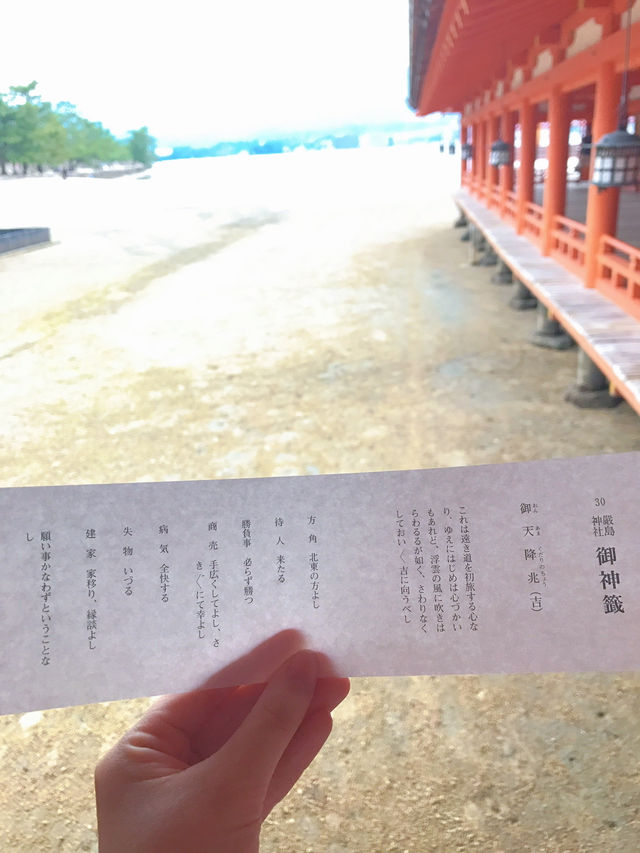 30
嚴島神社
御神籤
御天降兆（吉）
おん あま くだりのちょう
これは遠き道を初旅する心な
り、ゆえにはじめは心づかい
もあれど、浮雲の風に吹きは
らわるるが如く、さわりなく
しておい〱吉に向うべし
方 角 北東の方よし
待 人 来たる
勝負事 必らず勝つ
商 売 手広くしてよし、さ
き〲にて幸よし
病 気 全快する
失 物 いづる
建 家 家移り、縁談よし
願い事かなわずということな
し